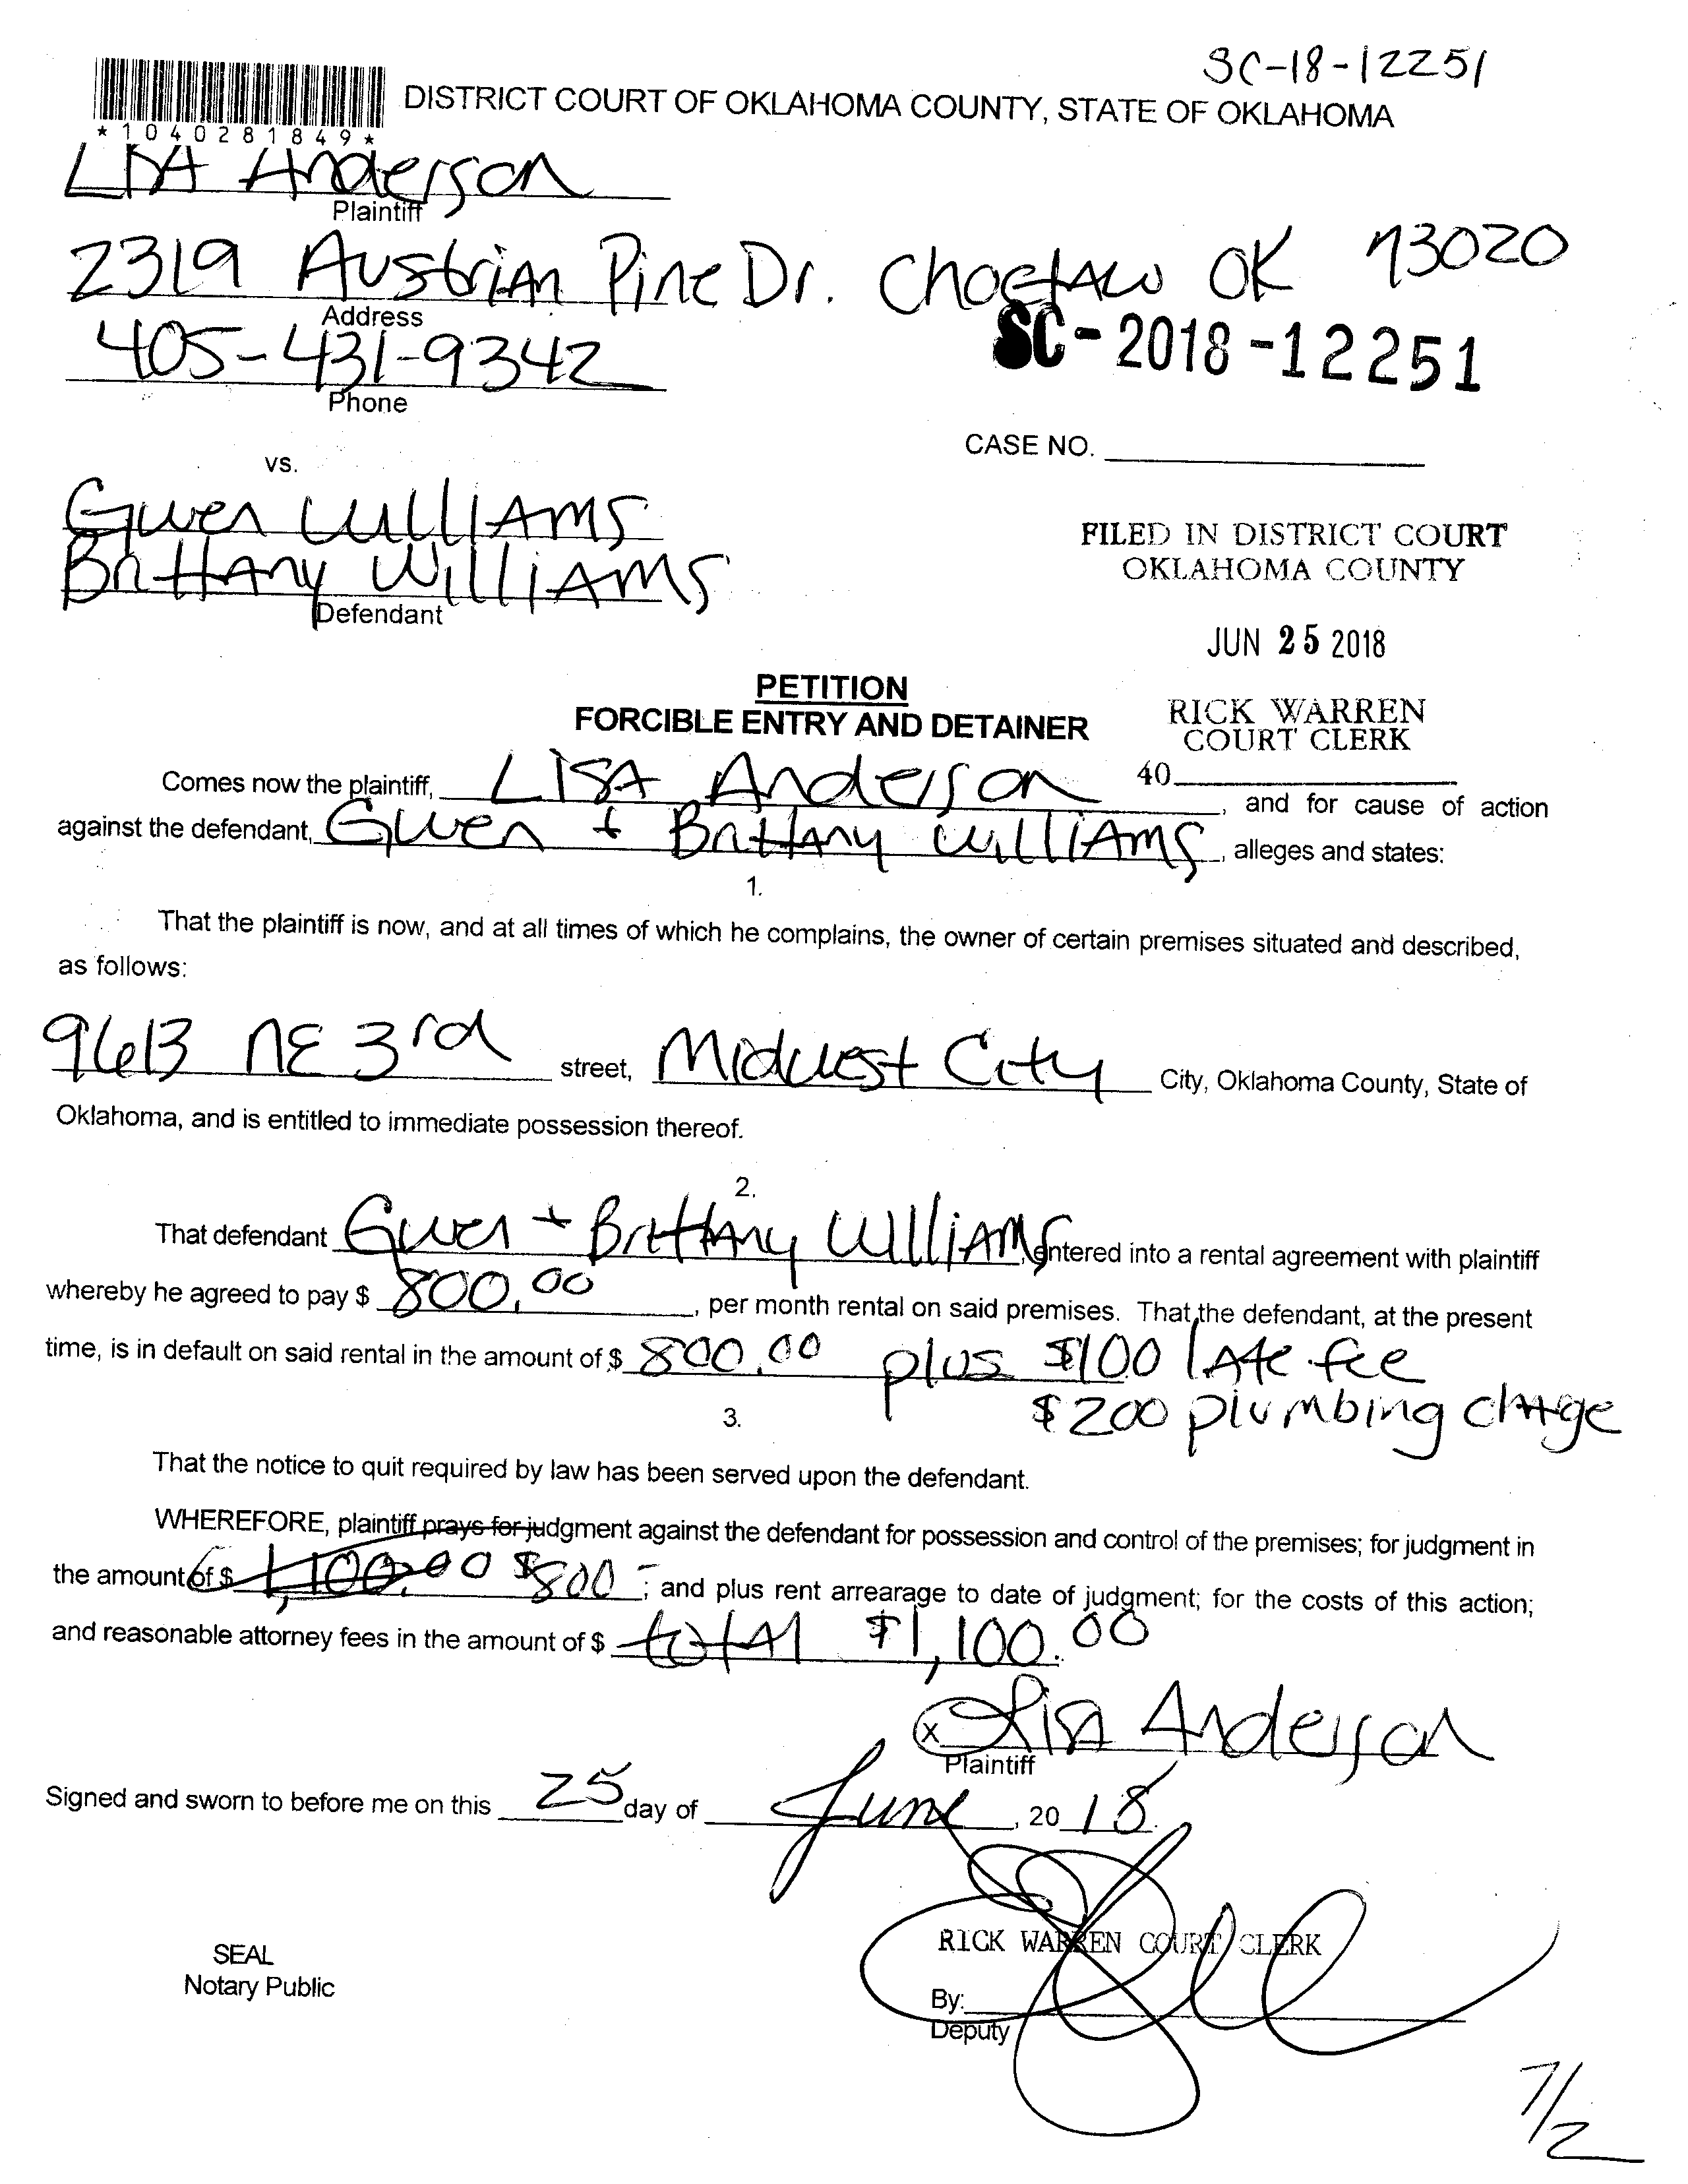 SC-18-12251
*1040281849*
DISTRICT COURT OF OKLAHOMA COUNTY, STATE OF OKLAHOMA
LISA Anderson
Plaintiff
2319 Austrian Pine Dr. Choctaw OK 73020
Address
405-431-9342
Phone
SC-2018-12251
CASE NO.
vs.
Gwen Williams
Brittany Williams
Defendant
FILED IN DISTRICT COURT
OKLAHOMA COUNTY
JUN 25 2018
RICK WARREN
COURT CLERK
40
PETITION
FORCIBLE ENTRY AND DETAINER
Comes now the plaintiff, LISA Anderson, and for cause of action
against the defendant, Gwen + Brittany Williams, alleges and states:
1.
That the plaintiff is now, and at all times of which he complains, the owner of certain premises situated and described,
as follows:
9613 NE 3rd street, Midwest City City, Oklahoma County, State of
Oklahoma, and is entitled to immediate possession thereof.
2.
That defendant Gwen + Brittany Williams, entered into a rental agreement with plaintiff
whereby he agreed to pay $ 800.00, per month rental on said premises. That the defendant, at the present
time, is in default on said rental in the amount of $ 800.00 plus $100 late fee
$200 plumbing charge
3.
That the notice to quit required by law has been served upon the defendant.
WHEREFORE, plaintiff prays for judgment against the defendant for possession and control of the premises; for judgment in
the amount of $ 1,100.00 $800-; and plus rent arrearage to date of judgment; for the costs of this action;
and reasonable attorney fees in the amount of $ total $1,100.00
x Lisa Anderson
Plaintiff
Signed and sworn to before me on this 25 day of June, 2018.
RICK WARREN COURT CLERK
SEAL
Notary Public
By:
Deputy
7/2